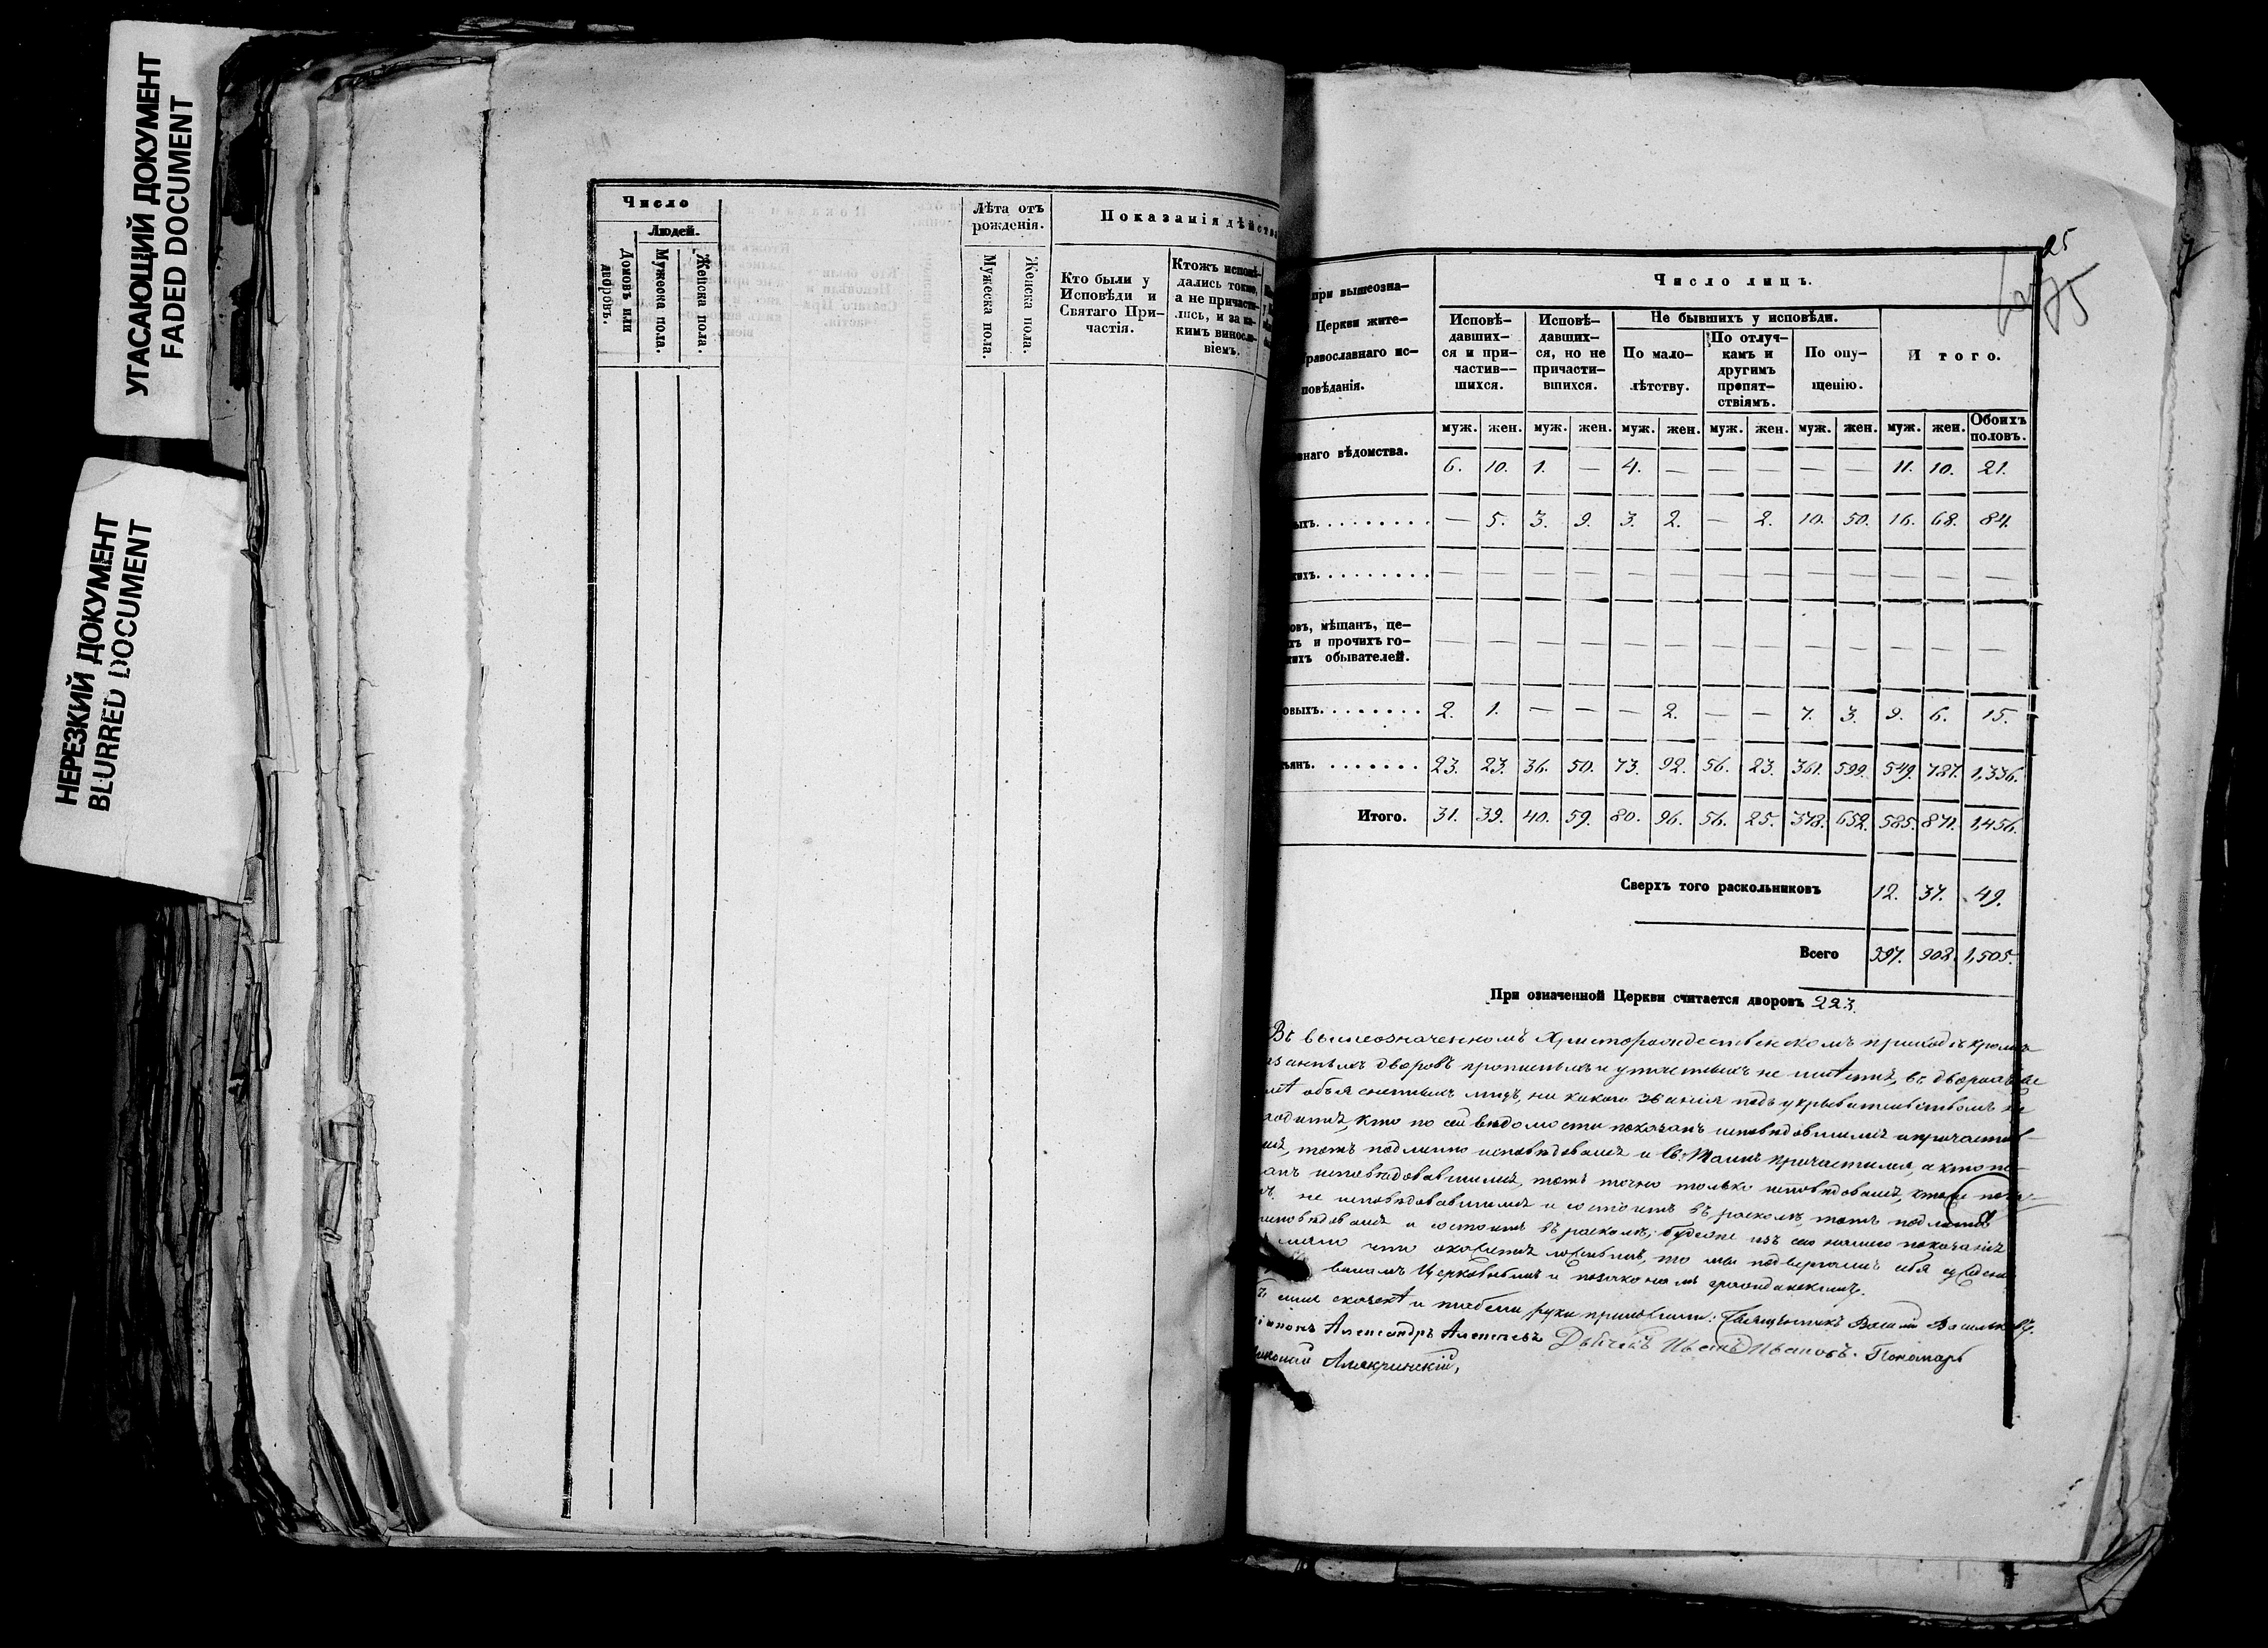 УГАСАЮЩИЙ ДОКУМЕНТ
FADED DOCUMENT
НЕРЕЗКИЙ ДОКУМЕНТ
BLURRED DOCUMENT
Число
Людей.
Домовъ или дворовъ.
Мужеска пола.
Женска пола.
Лѣта отъ
рожденія.
Мужеска пола.
Женска пола.
Показанія дѣйства
Кто были у
Исповѣди и
Святаго При-
частія.
Ктожъ исповѣ-
дались токмо,
а не причасти-
лись, и за ка-
кимъ виносло-
віемъ.
25
75
при вышеозна-
Церкви жите-
равославнаго ис-
повѣданія.
Число лицъ.
Исповѣ-
давших-
ся и при-
частив-
шихся.
Исповѣ-
давших-
ся, но не
причасти-
вшихся.
Не бывшихъ у исповѣди.
По мало-
лѣтству.
По отлуч-
камъ и
другимъ
препят-
ствіямъ.
По опу-
щенію.
Итого.
муж. жен. муж. жен. муж. жен. муж. жен. муж. жен. муж. жен. Обоихъ половъ.
внаго вѣдомства. 6. 10. 1. — 4. — — — — — 11. 10. 21.
ыхъ. — 5. 3. 9. 3. 2. — 2. 10. 50. 16. 68. 84.
кихъ. — — — — — — — — — — — — —
овъ, мѣщанъ, це-
хъ и прочихъ го-
кихъ обывателей. — — — — — — — — — — — — —
овыхъ. 2. 1. — — — 2. — — 7. 3. 9. 6. 15.
тьянъ. 23. 23. 36. 50. 73. 92. 56. 23. 361. 599. 549. 787. 1,336.
Итого. 31. 39. 40. 59. 80. 96. 56. 25. 378. 652. 585. 871. 1,456.
Сверхъ того раскольниковъ 12. 37. 49.
Всего 597. 908. 1,505.
При означенной Церкви считается дворовъ 223.
Въ вышеозначенномъ Христорождественскомъ приходѣ кромѣ
дворовъ прописныхъ и утаенныхъ не имѣется, въ дворахъ же
лицъ, ни какого званія подъ укрывательствомъ не
кто по сей вѣдомости показанъ исповѣдовавшимся и причастив-
тотъ подлинно исповѣдовался и Св. Таинъ причастился, а кто по-
анъ исповѣдовавшимся, тотъ точно только исповѣдовался, кто же пока-
не исповѣдовавшимся и состоитъ въ расколѣ, тотъ подлинно
исповѣдовался и состоитъ въ расколѣ; будеже изъ сего нашего показанія
что окажется ложнымъ, то мы подвергаемъ себя
виламъ Церковнымъ и по законамъ гражданскимъ.
руки приложили: Священникъ Василій Васильковъ.
іаконъ Александръ Алексѣевъ Дьячекъ Иванъ Ивановъ. Пономарь
Алякринскій,